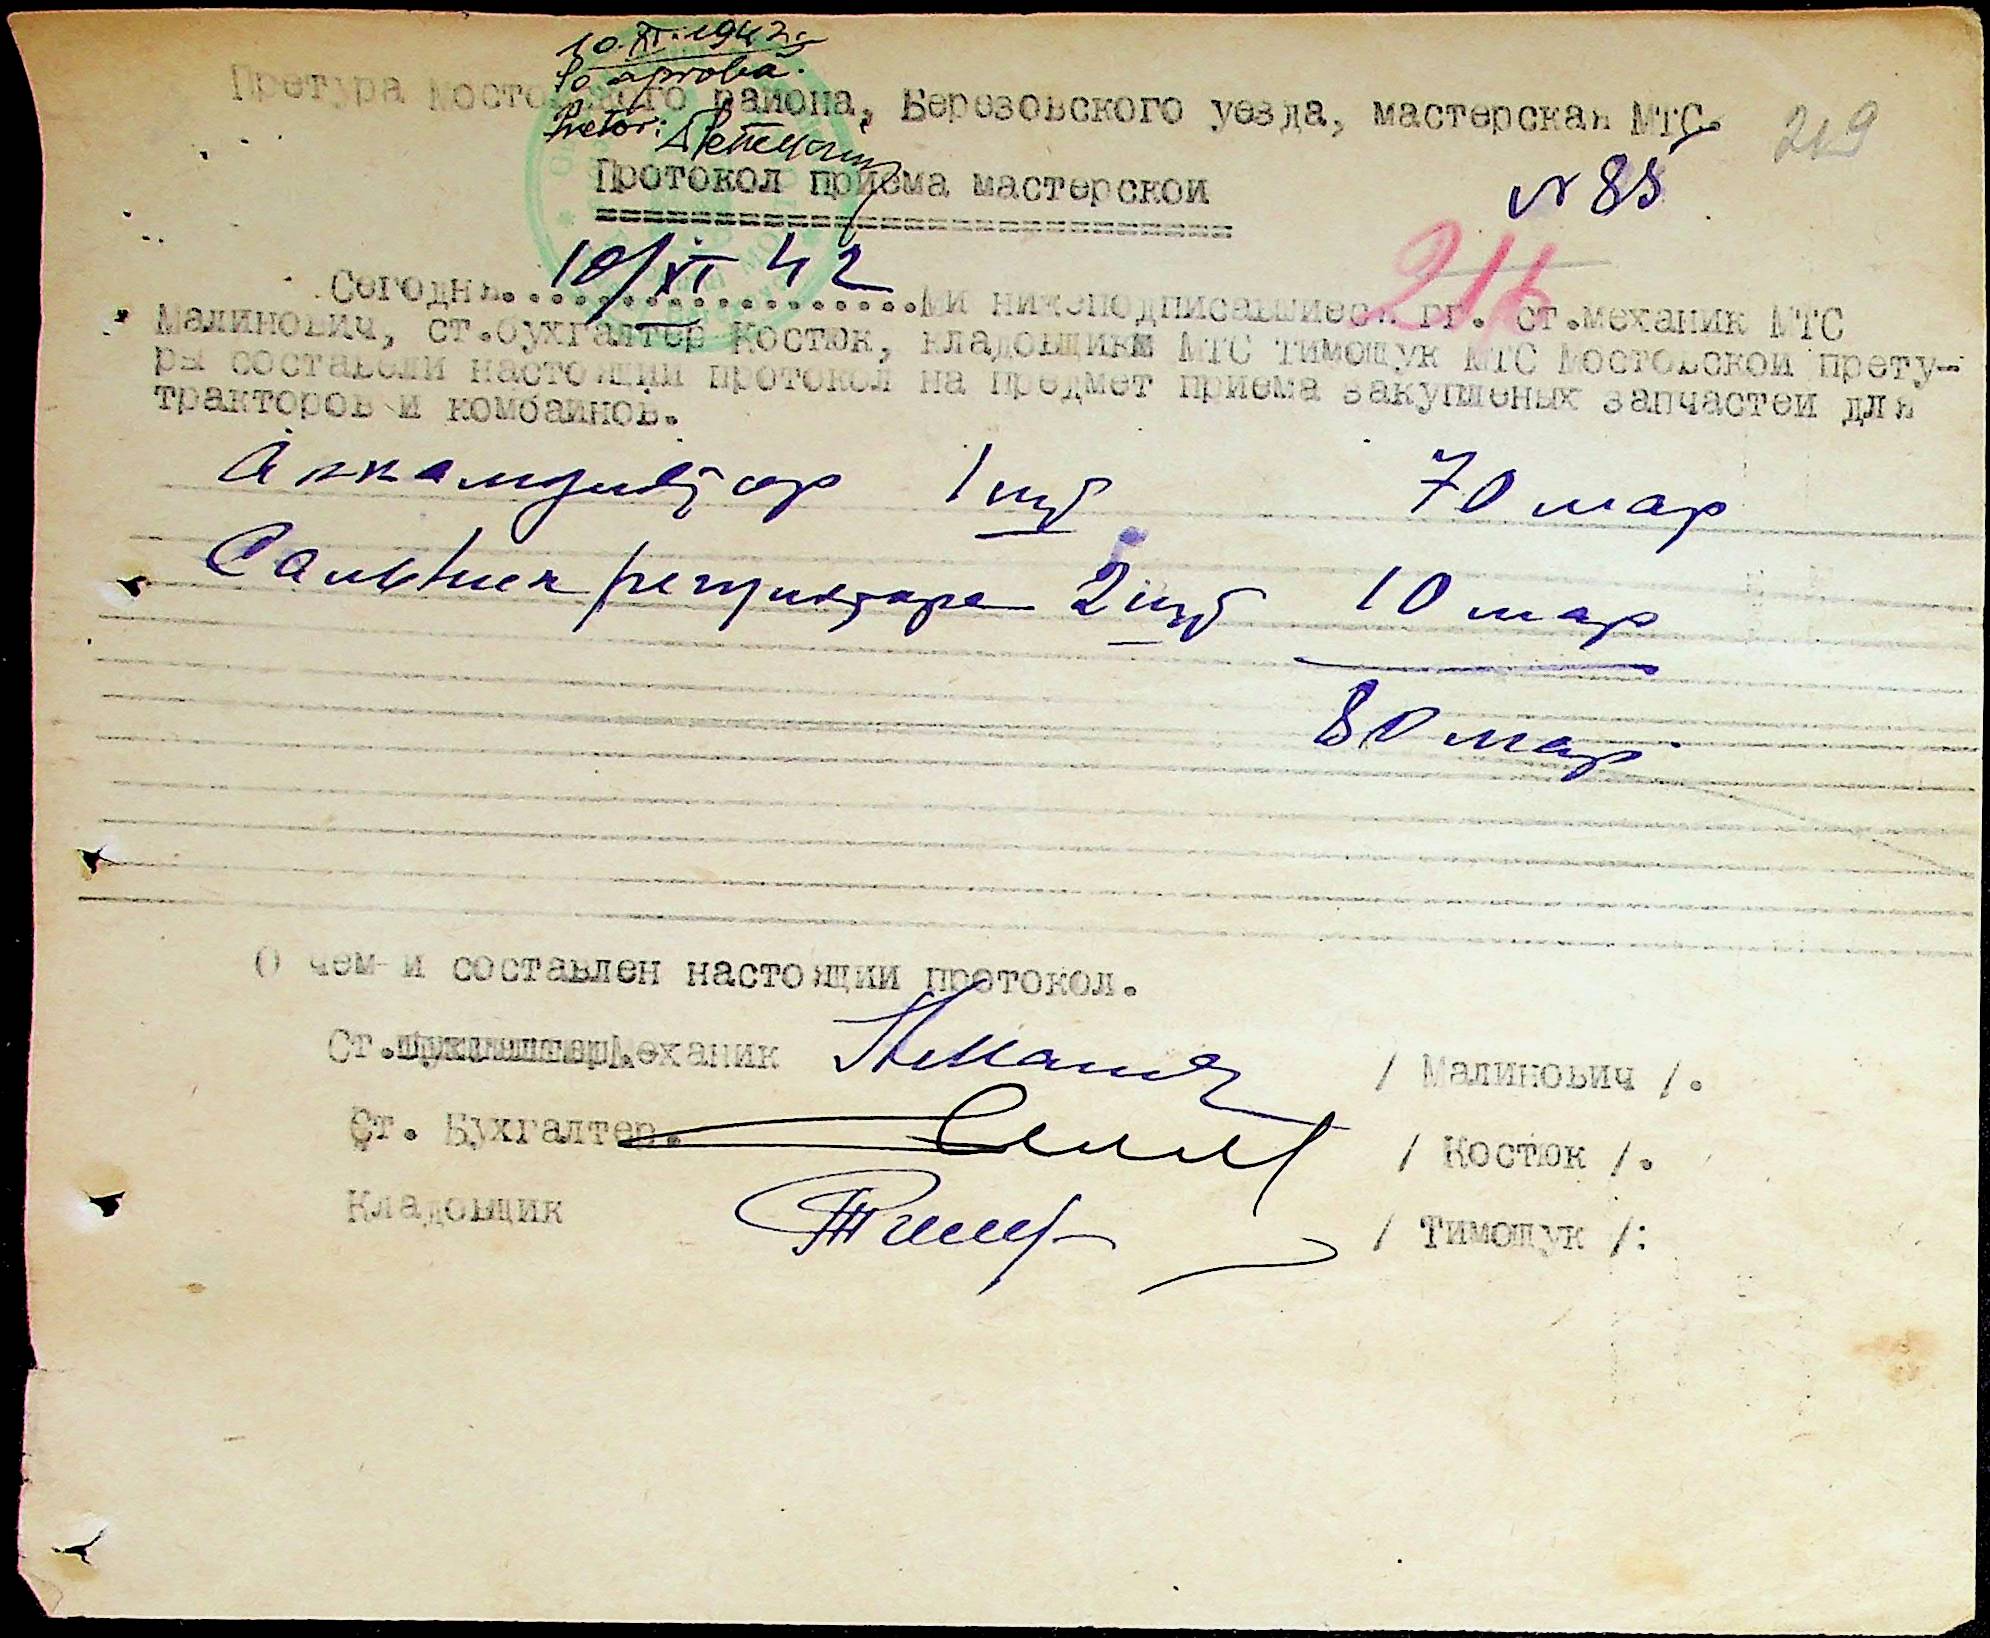 10.XI.1942 г.
Se aproba.
Pretor:
Претура Мостовского района, Березовского уезда, мастерская МТС.
219
Протокол приема мастерской
№ 85
216
10/XI 42
Сегодня..................Ми нижеподписавшиеся гг. ст.механик МТС
Малинович, ст.бухгалтер Костюк, кладовщик МТС Тимощук МТС Мостовской прету-
ры составели настоящий протокол на предмет приема закупленых запчастей для
тракторов и комбайнов.
Аккамулятор 1 шт 70 мар
Сальник 2 шт 10 мар
80 мар
О чем и составлен настоящий протокол.
Ст. Механик / Малинович /.
Ст. Бухгалтер. / Костюк /.
Кладовщик / Тимощук /: